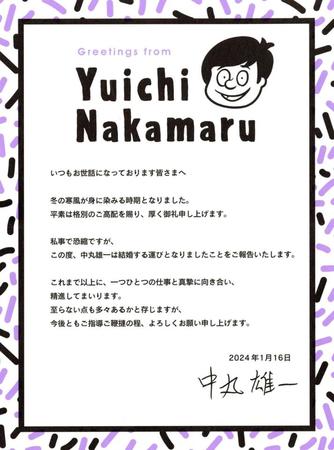 Greetings from
Yuichi
Nakamaru
いつもお世話になっております皆さまへ
冬の寒風が身に染みる時期となりました。
平素は格別のご高配を賜り、厚く御礼申し上げます。
私事で恐縮ですが、
この度、中丸雄一は結婚する運びとなりましたことをご報告いたします。
これまで以上に、一つひとつの仕事と真摯に向き合い、
精進してまいります。
至らない点も多々あるかと存じますが、
今後ともご指導ご鞭撻の程、よろしくお願い申し上げます。
2024年1月16日
中丸 雄一